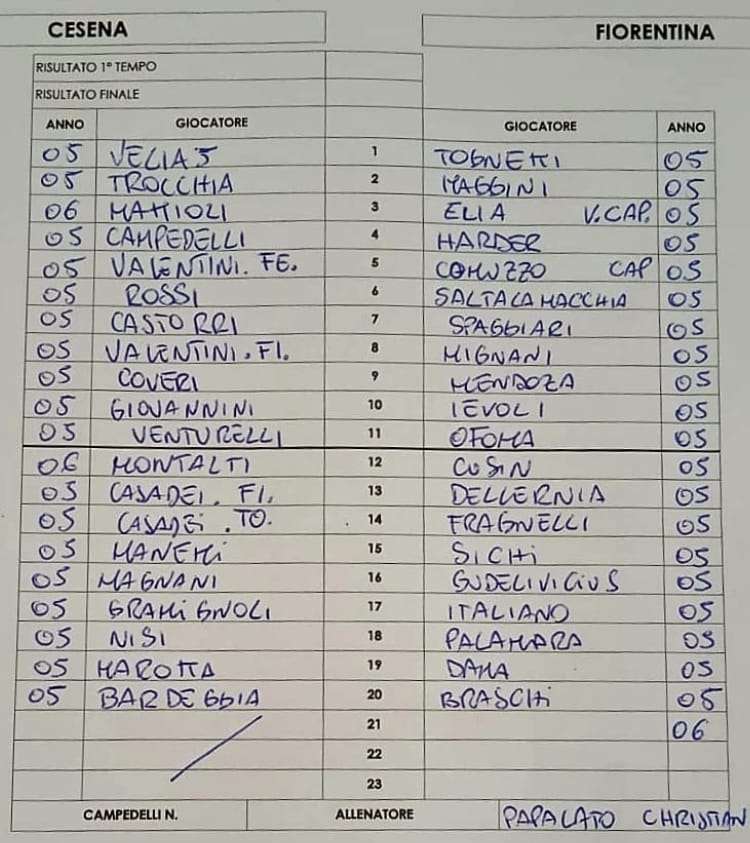 CESENA FIORENTINA
RISULTATO 1° TEMPO
RISULTATO FINALE
ANNO GIOCATORE GIOCATORE ANNO
05 VELIAJ 1 TOGNETTI 05
05 TROCCHIA 2 MAGGINI 05
06 MATTIOLI 3 ELIA V.CAP. 05
05 CAMPEDELLI 4 HARDER 05
05 VALENTINI. FE. 5 COMUZZO CAP 05
05 ROSSI 6 SALTALAMACCHIA 05
05 CASTORRI 7 SPAGGIARI 05
05 VALENTINI. FI. 8 MIGNANI 05
05 COVERI 9 MENDOZA 05
05 GIOVANNINI 10 IEVOLI 05
05 VENTURELLI 11 OFOMA 05
06 MONTALTI 12 CUSIN 05
05 CASADEI. FI. 13 DELLERNIA 05
05 CASADEi . TO. 14 FRAGNELLI 05
05 MANETTi 15 SiCHi 05
05 MAGNANI 16 GUDELIVICIUS 05
05 GRAMiGNOLI 17 ITALIANO 05
05 NISI 18 PALAMARA 05
05 MAROTTA 19 DAMA 05
05 BARDEGGIA 20 BRASCHi 05
21 06
22
23
CAMPEDELLI N. ALLENATORE PAPALATO CHRISTIAN